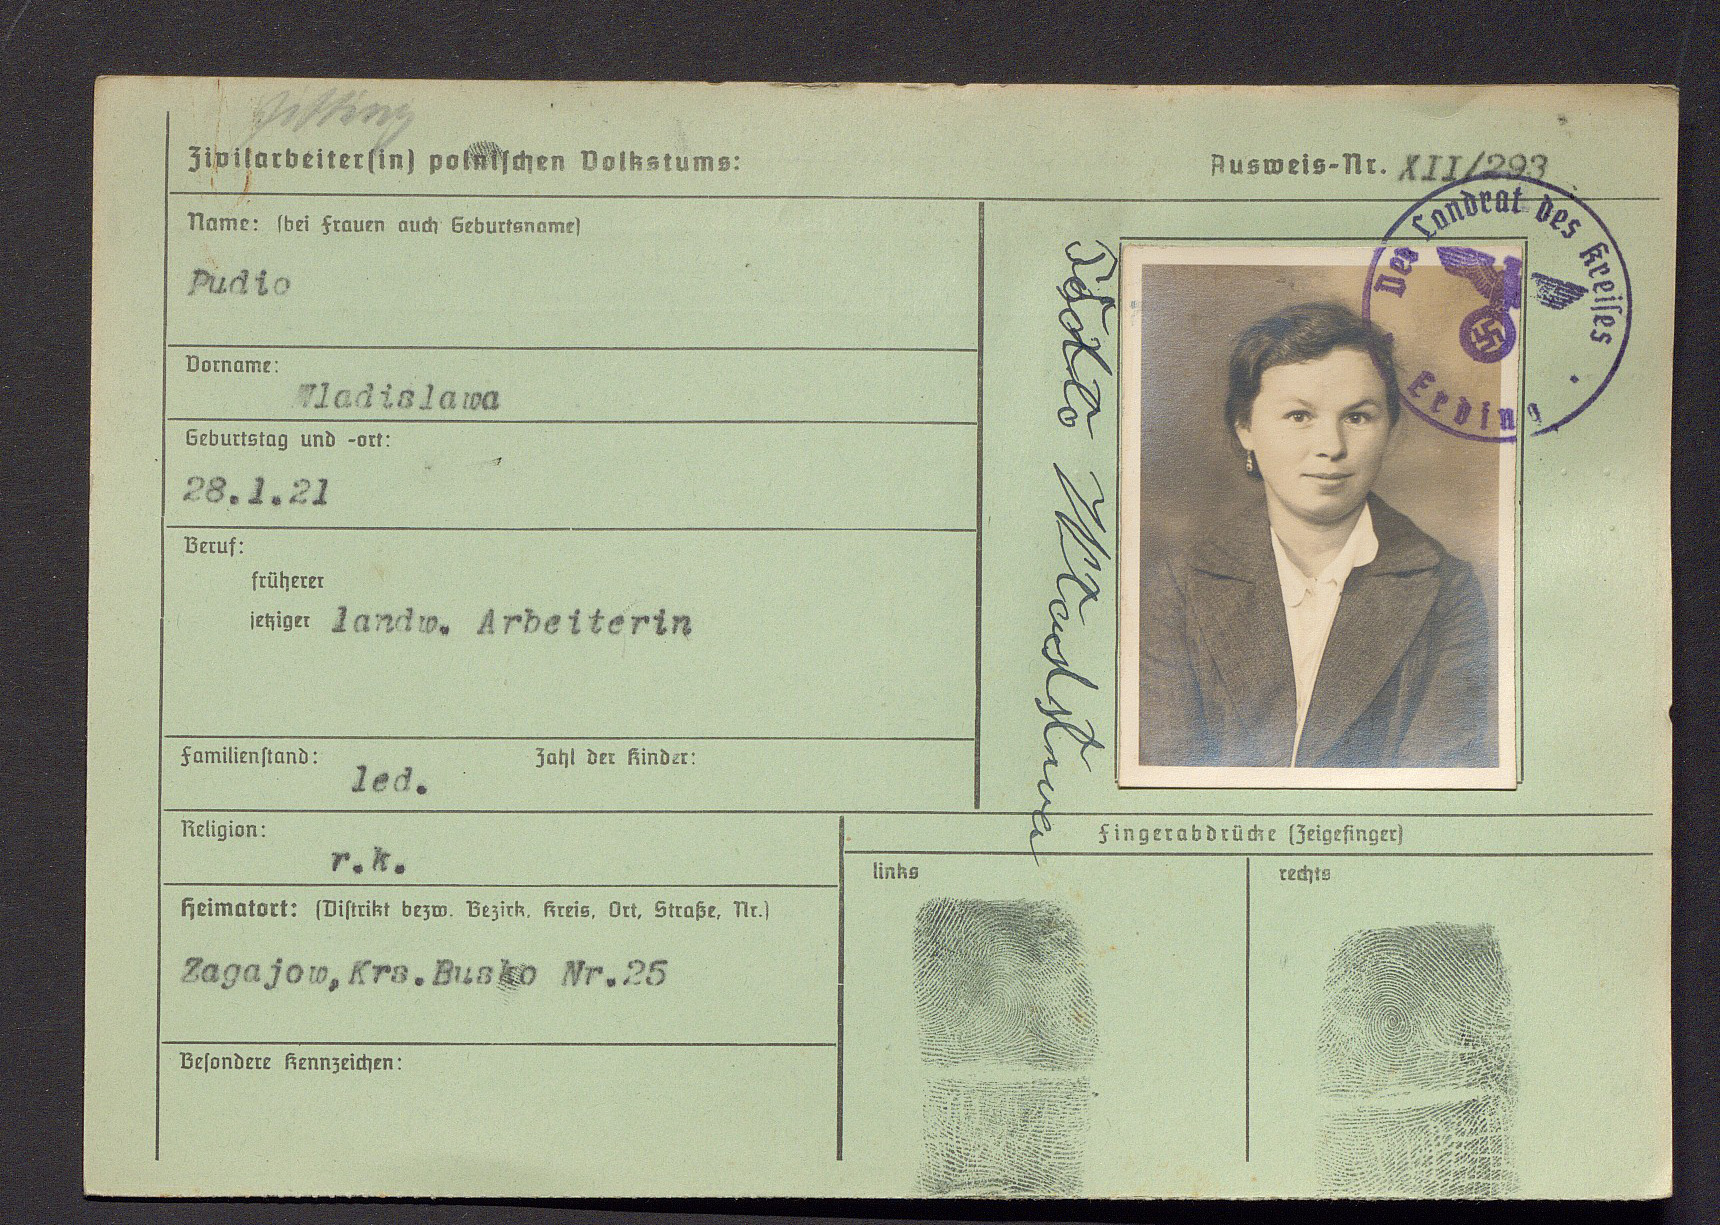 Zivilarbeiter(in) polnischen Volkstums:
Ausweis-Nr. XII/293
Name: (bei Frauen auch Geburtsname)
Pudio
Vorname:
Wladislawa
Geburtstag und -ort:
28.1.21
Beruf:
früherer
jetziger landw. Arbeiterin
Familienstand: led. Zahl der Kinder:
Religion:
r.k.
Heimatort: (Distrikt bezw. Bezirk, Kreis, Ort, Straße, Nr.)
Zagajow, Krs. Busko Nr.25
Besondere Kennzeichen:
Der Landrat des Kreises
Erding
Fingerabdrücke (Zeigefinger)
links
rechts